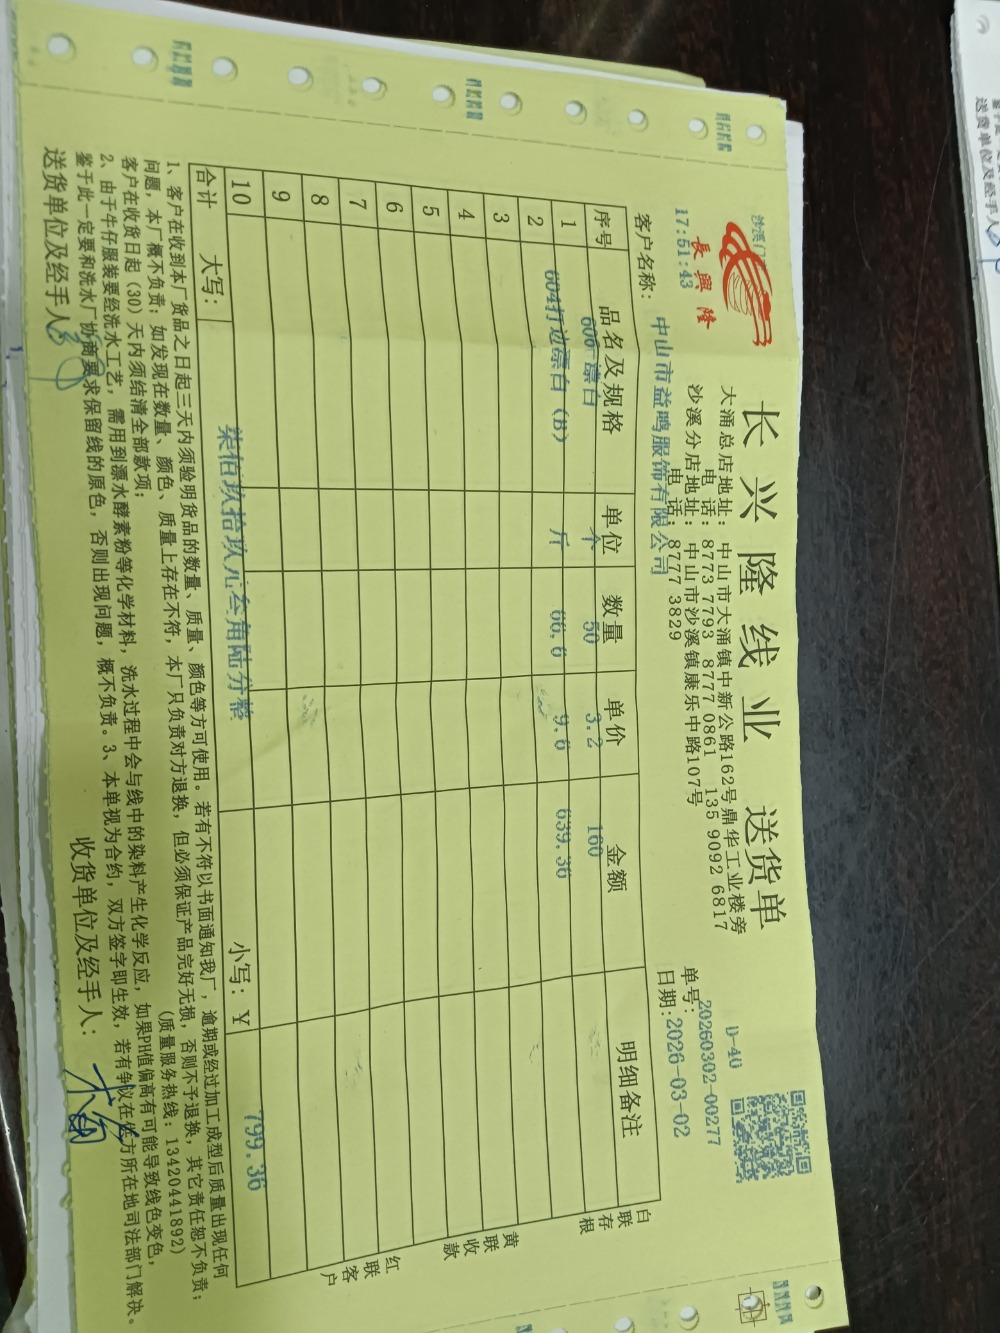 长兴隆线业 送货单
長興隆
沙溪门
17:51:43
大涌总店地址: 中山市大涌镇中新公路162号鼎华工业楼旁
电 话: 8773 7793 8777 0861 135 9092 6817
沙溪分店地址: 中山市沙溪镇康乐中路107号
电 话: 8777 3829
D-40
单号: 20260302-00277
日期: 2026-03-02
客户名称: 中山市益鸣服饰有限公司
序号 品名及规格 单位 数量 单价 金额 明细备注
606 漂白 个 50 3.2 160
1 604打边漂白 (B) 斤 66.6 9.6 639.36
2
3
4
5
6
7
8
9
10
合计 大写: 柒佰玖拾玖元叁角陆分整 小写: ¥ 799.36
白联存根
黄联收款
红联客户
1、客户在收到本厂货品之日起三天内须验明货品的数量、质量、颜色等方可使用。若有不符以书面通知我厂,逾期或经过加工成型后质量出现任何
问题,本厂概不负责;如发现在数量、颜色、质量上存在不符,本厂只负责对方退换,但必须保证产品完好无损,否则不予退换,其它责任恕不负责;
客户在收货日起(30)天内须结清全部款项; (质量服务热线:13420441892)
2、由于牛仔服装要经洗水工艺,需用到漂水酵素粉等化学材料,洗水过程中会与线中的染料产生化学反应,如果PH值偏高有可能导致线色变色,
鉴于此一定要和洗水厂协商要求保留线的原色,否则出现问题,概不负责。3、本单视为合约,双方签字即生效,若有争议在供方所在地司法部门解决。
送货单位及经手人: 收货单位及经手人:
送货单位及经手人